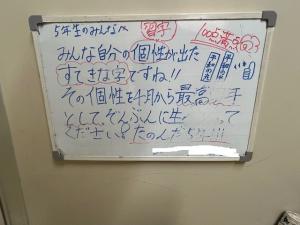 5年生のみんなへ
習字
100点満点
みんな自分の個性が出た
すてきな字ですね!!
その個性を4月から最高 手
として、ぞんぶんに生 って
ください。たのんだ5年!!!